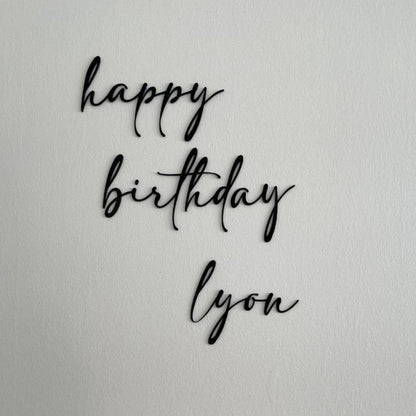 happy
birthday
lyon